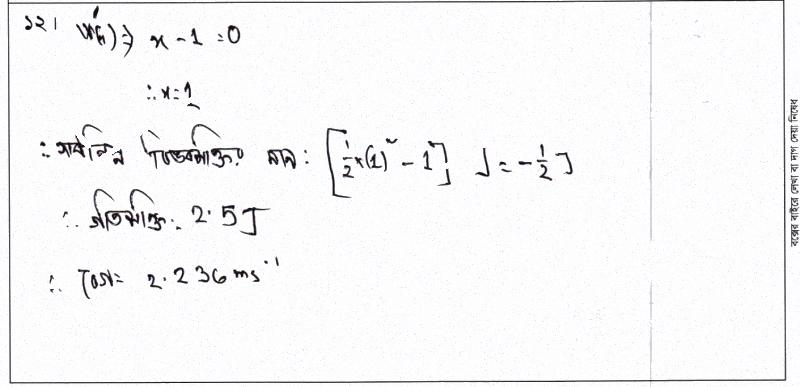 ১২। U'(x) ⇒ x - 1 = 0
∴ x = 1
∴ সর্বনিম্ন বিভবশক্তির মান : [½ × (1)² - 1] J = -½ J
∴ গতিশক্তি = 2.5 J
∴ বেগ = 2.236 ms⁻¹
বক্সের বাইরে লেখা বা দাগ দেয়া নিষেধ